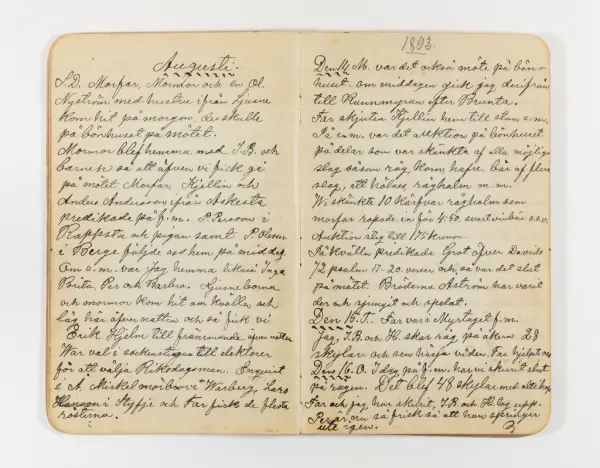 Augusti.
S.D. Morfar, Mormor och en Ol.
Nyström med hustru ifrån Ljusne
kom hit på morgon, de skulle
på bönhuset på mötet.
Mormor blef hemma med I.B. och
barnen så att äfven vi fick gå
på mötet Morfar, Kjellin och
Anders Andersson ifrån Askesta
predikade på f.m. P. Persson i
Rappsta och pigan samt P. Olsson
i Berge följde oss hem på middag.
Om e.m. var jag hemma likaså Inga
Brita, Per och Barbro. Ljusneborna
och mormor kom hit om kvällen och
låg här öfver natten och så fick vi
Erik Hjelm till främmande öfver natten
War val i sockenstugan till elektorer
för att välja Riksdagsman. Enquist
i A, Mickelsmorbror i Warberg, Lars
Hansson i Styfje och Far fick de flesta
rösterna.
1893.
Den 14 M. var det också möte på bön-
huset. om middagen gick jag derifrån
till Hannmyran efter Brunta.
Far skjutsa Kjellin hem till stan e.m.
Då e.m. var det auktion på bönhuset
på delar som var skänkta af alla möjliga
slag, såsom råg, korn, hafre, bär af flera
slag, ett halss, råghalm m.m.
Wi skänkte 10 kärfvar råghalm som
morfar ropade in för 4:50. svartvinbär o.s.v.
Auktion steg till 175 kronor.
På kvällen predikade Grot öfver Davids
72 psalm 17-20. verser och så var det slut
på mötet. Bröderna Åström har varit
der och sjungit och spelat.
Den 15. T. Far var i Myrtaget f.m.
Jag, I.B. och H. skar råg på åkern 28
skylar och sen hässja vi den. Far hjelpte oss
Den 16. O. I dag på f.m. har vi skurit slut
på rågen. Det blef 48 skylar med alltihop
Far och jag har skurit, I.B. och H. tog upp.
Per är nu så frisk så att han springer
ute igen.